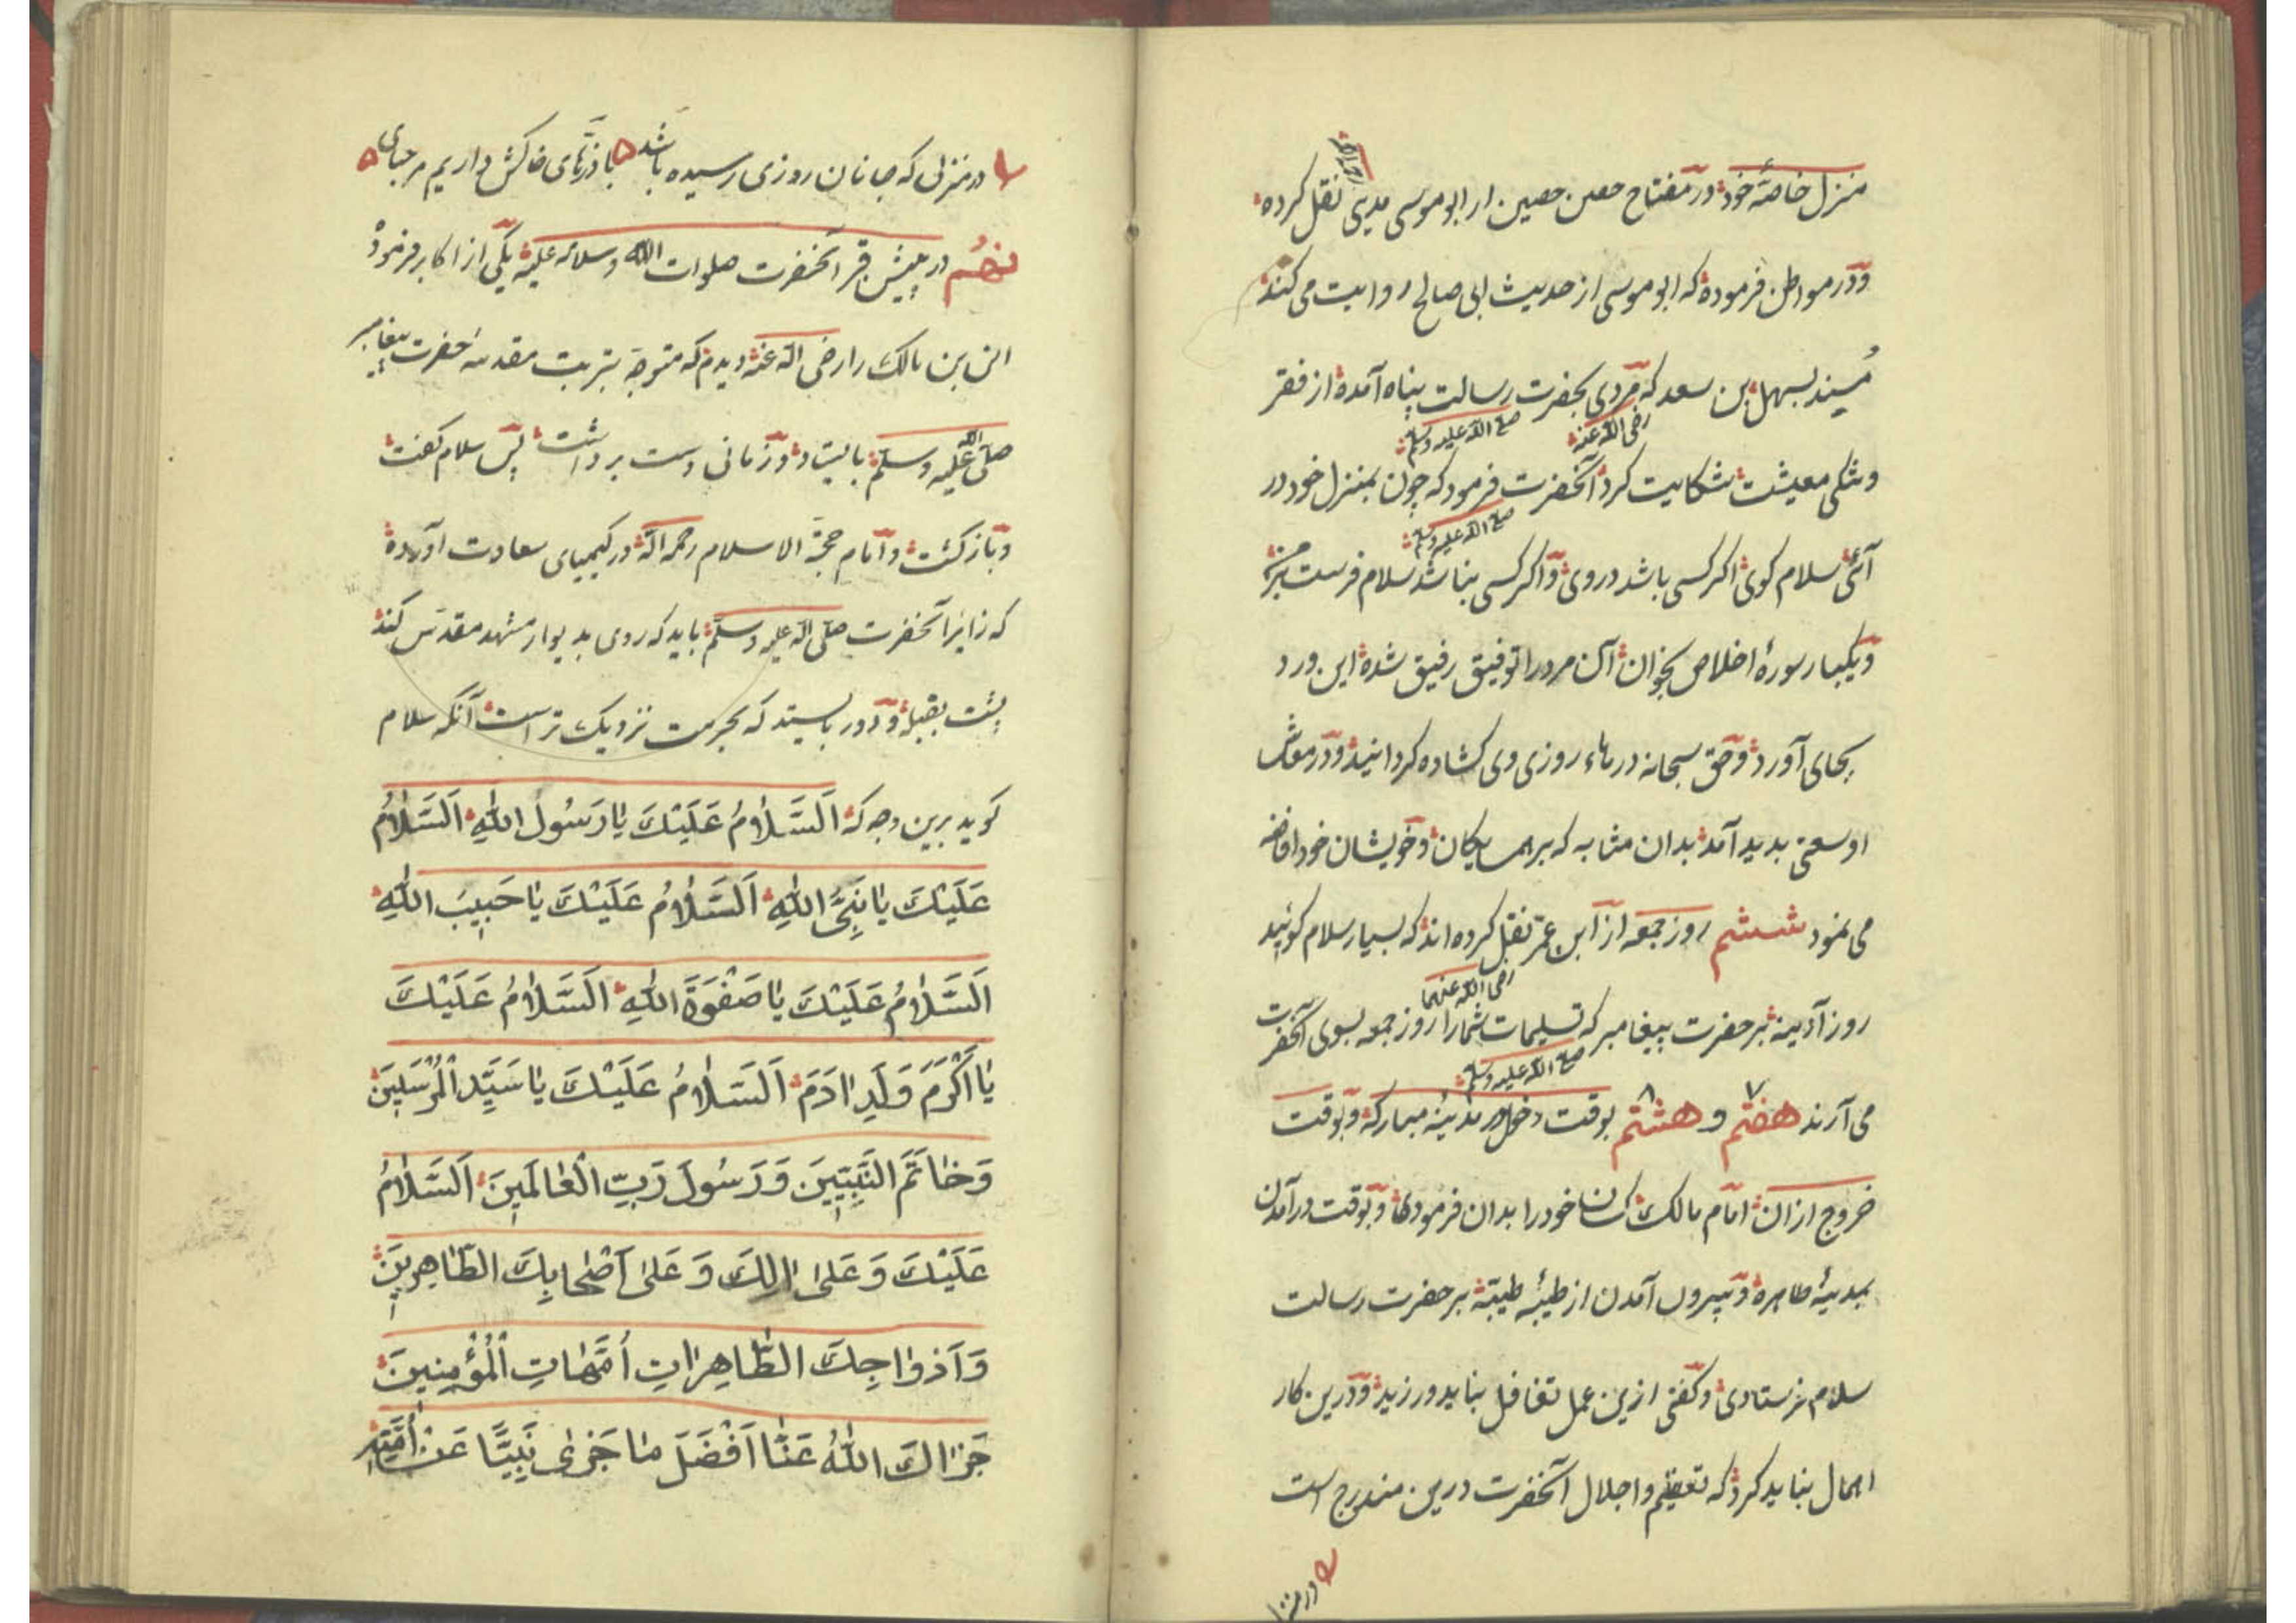 منزل خاصّهٔ خود در مفتاح حصن حصین از ابو موسی مدینی نقل کرده
رحمه الله
و در مواطن فرموده که ابو موسی از حدیث ابی صالح روایت می کند
مُسند بسهل بن سعد که مردی بحضرت رسالت پناه آمده از فقر
رضی الله عنه صلی الله علیه وسلم
و تنکی معیشت شکایت کرد آنحضرت فرمود که چون بمنزل خود در
صلی الله علیه وسلم
آئی سلام کوی اکر کسی باشد در وی و اکر کسی نباشد سلام فرست بر من
و یکبار سورهٔ اخلاص بخوان آن مرد را توفیق رفیق شده این ورد
بجای آورد و حق سبحانه درهاء روزی وی کشاده کردانید و در معاش
او سعتی بدید آمد بدان مثابه که بر همسایکان و خویشان خود افاضه
می نمود ششم روز جمعه از ابن عمر نقل کرده اند که بسیار سلام کوئید
رضی الله عنهما
روز آدینه بر حضرت پیغامبر که تسلیمات شما را روز جمعه بسوی آنحضرت
صلی الله علیه وسلم
می آرند هفتم و هشتم بوقت دخول در مدینهٔ مبارکه و بوقت
۷ ۸
خروج از ان امام مالک کسان خود را بدان فرمودی و بوقت درآمدن
بمدینهٔ طاهره و بیرون آمدن از طیبهٔ طیبّه بر حضرت رسالت
سلام فرستادی و کفتی ازین عمل تغافل نباید ورزید و درین کار
اهمال نباید کرد که تعظیم و اجلال آنحضرت درین مندرج است
در منزلی که جانان روزی رسیده باشد با ذرّهای خاکش داریم مرحبای
نهم در پیش قبر آنحضرت صلوات الله وسلامه علیه یکی از اکابر فرمود
انس بن مالک را رضی الله عنه دیدم که متوجّه بتربت مقدسه حضرت پیغامبر
صلی الله علیه وسلّم بایستاد و زمانی دست برداشت پس سلام کفت
و باز کشت و امام حجّة الاسلام رحمه الله در کیمیای سعادت آورده
که زایر آنحضرت صلّی الله علیه وسلّم باید که روی بدیوار مشهد مقدّس کند
پشت بقبله و دور بایستد که بحرمت نزدیک تر است آنکه سلام
کوید برین وجه که اَلسَّلامُ عَلَيْكَ يا رَسُولَ اللهِ اَلسَّلامُ
عَلَيْكَ يا نَبِيَّ اللهِ اَلسَّلامُ عَلَيْكَ يا حَبِيبَ اللهِ
اَلسَّلامُ عَلَيْكَ يا صَفْوَةَ اللهِ اَلسَّلامُ عَلَيْكَ
يا اَكْرَمَ وَلَدِ ادَمَ اَلسَّلامُ عَلَيْكَ يا سَيِّدَ الْمُرْسَلِينَ
وَخاتَمَ النَّبِيّينَ وَرَسُولَ رَبِّ الْعالَمِينَ اَلسَّلامُ
عَلَيْكَ وَعَلى الِكَ وَعَلى اَصْحابِكَ الطّاهِرِينَ
وَاَزْواجِكَ الطّاهِراتِ اُمَّهاتِ الْمُؤْمِنِينَ
جَزاكَ اللهُ عَنّا اَفْضَلَ ما جَزى نَبِيًّا عَنْ اُمَّتِهِ